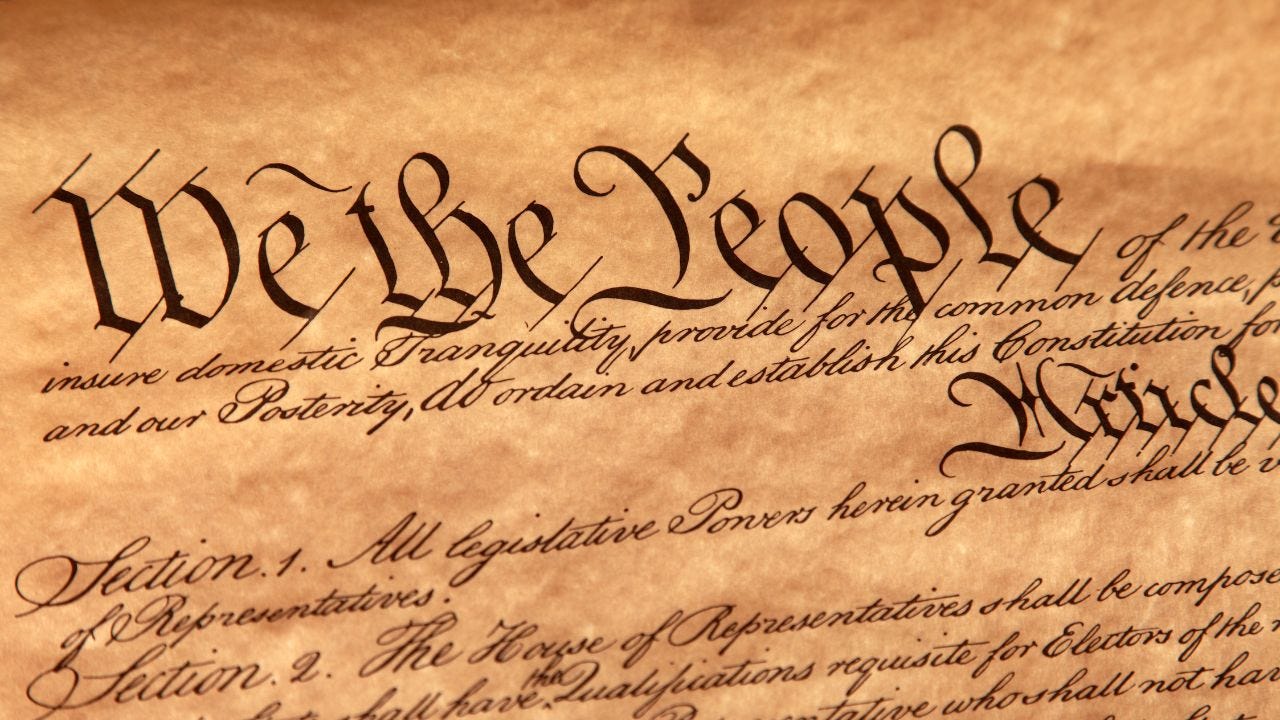 We the People of the
insure domestic Tranquility, provide for the common defence,
and our Posterity, do ordain and establish this Constitution for
Article
Section. 1. All legislative Powers herein granted shall be
of Representatives.
Section. 2. The House of Representatives shall be compose
shall have the Qualifications requisite for Electors of the
who shall not hav